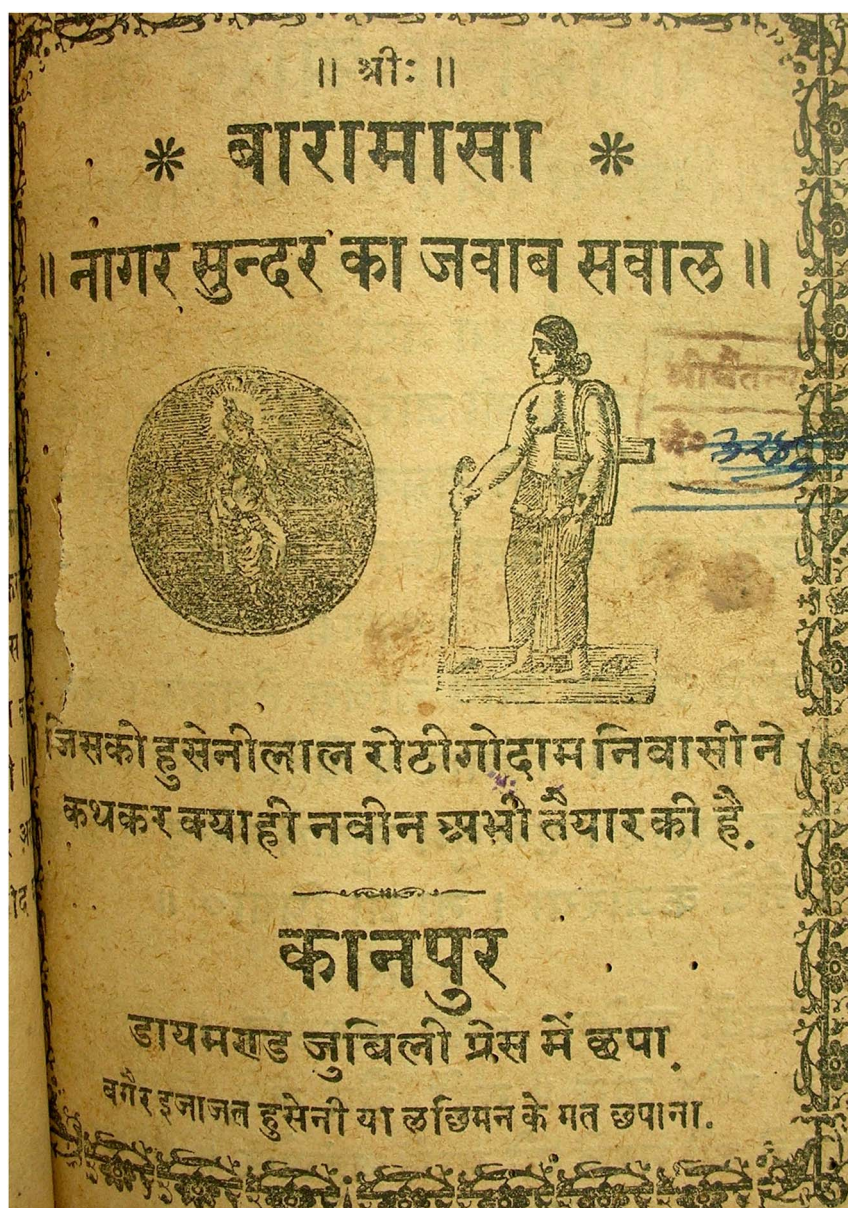 ॥ श्रीः ॥
* बारामासा *
॥ नागर सुन्दर का जवाब सवाल ॥
श्रीचैतन्य
जिसको हुसेनीलाल रोटीगोदाम निवासी ने
कथकर क्याही नवीन अभी तैयार की है.
कानपुर
डायमण्ड जुबिली प्रेस में छपा.
बगैर इजाजत हुसेनी या लछिमन के मत छपाना.